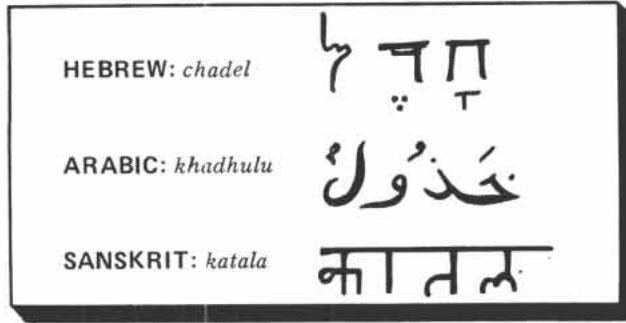 HEBREW: chadel חָדֶל
ARABIC: khadhulu خَذُولٌ
SANSKRIT: katala कातल